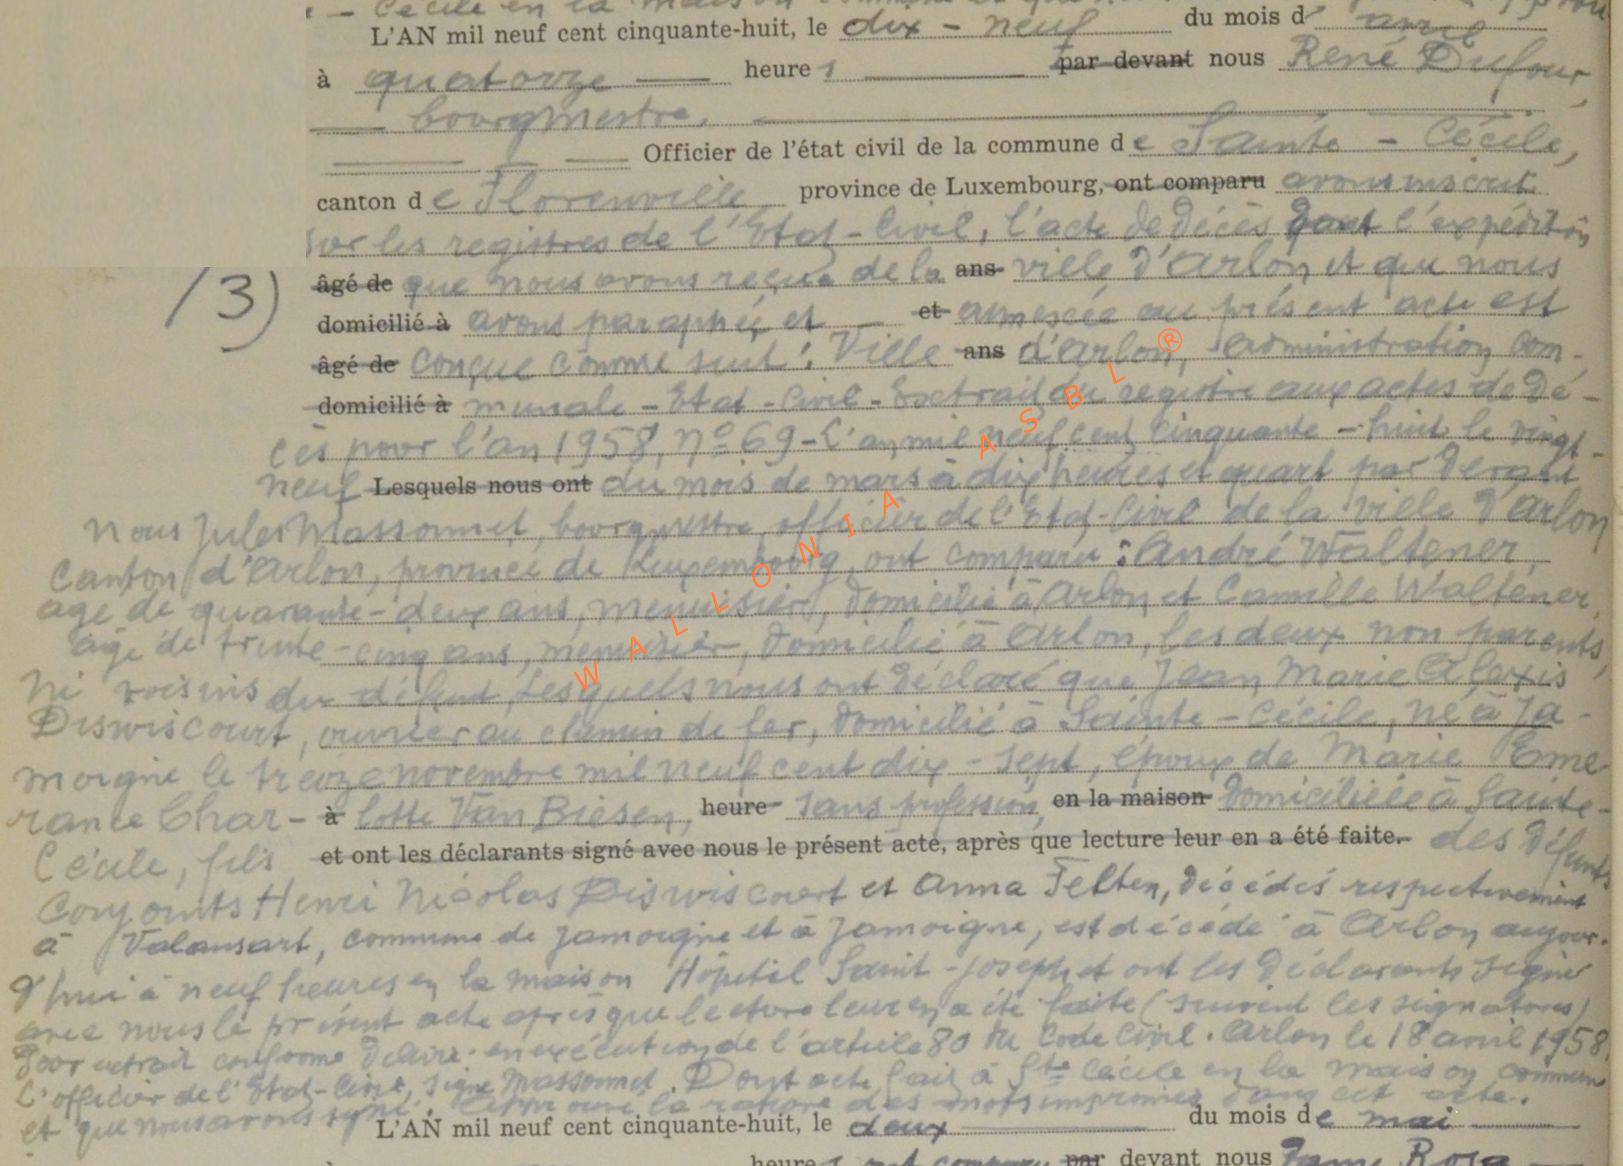 - Cécile en la maison commune
L'AN mil neuf cent cinquante-huit, le dix - neuf du mois d' avril
à quatorze heures par devant nous René Dufour,
bourgmestre,
Officier de l'état civil de la commune de Sainte - Cécile,
canton de Florenville province de Luxembourg, ont comparu avons inscrit
sur les registres de l'Etat-Civil, l'acte de décès dont l'expédition
13) âgé de que nous avons reçue de la ans ville d'Arlon et que nous
domicilié à avons paraphée et et annexée au présent acte est
âgé de conçue comme suit : Ville ans d'Arlon, Administration com-
domicilié à munale - Etat - Civil - Extrait du registre aux actes de dé-
cès pour l'an 1958, n° 69 - L'an mil neuf cent cinquante - huit le vingt-
neuf Lesquels nous ont du mois de mars à dix heures et quart par devant
nous Jules Massonnet, bourgmestre, officier de l'Etat-Civil de la ville d'Arlon
Canton d'Arlon, province de Luxembourg, ont comparu : André Waltener,
âgé de quarante-deux ans, menuisier, domicilié à Arlon et Camille Waltener,
âgé de trente-cinq ans, menuisier, domicilié à Arlon, les deux non parents,
ni voisins du défunt, Lesquels nous ont déclaré que Jean Marie Alexis
Diswiscourt, ouvrier au chemin de fer, domicilié à Sainte-Cécile, né à Ja-
moigne le treize novembre mil neuf cent dix-sept, époux de Marie Eme-
rance Char- à lotte Van Biesen, heure sans profession, en la maison domiciliée à Sainte-
Cécile, fils et ont les déclarants signé avec nous le présent acte, après que lecture leur en a été faite. des défunts
conjoints Henri Nicolas Diswiscourt et Anna Felten, décédés respectivement
à Valansart, commune de Jamoigne et à Jamoigne, est décédé à Arlon aujour-
d'hui à neuf heures en la maison Hôpital Saint-Joseph et ont les déclarants signé
avec nous le présent acte après que lecture leur en a été faite (suivent les signatures)
Pour extrait conforme délivré en exécution de l'article 80 du Code Civil. Arlon le 18 avril 1958
L'officier de l'Etat-Civil, signé Massonnet. Dont acte fait à Ste Cécile en la maison commune
et que nous avons signé. Approuvé la rature des mots imprimés dans cet acte.
L'AN mil neuf cent cinquante-huit, le deux du mois de mai
heures ont comparu par devant nous
WALLONIA ASBL®